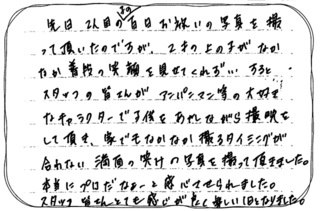 先日2人目の子の百日お祝いの写真を撮
って頂いたのですが、2才の上の子がなか
なか普段の笑顔を見せてくれずい ると
スタッフの皆さんが アンパンマン等の大好き
なキャラクターで子供をあやしながら撮影を
して頂き、家でもなかなか撮るタイミングが
合わない満面の笑みの写真を撮って頂きました。
本当にプロだなぁーと感じさせられました。
スタッフ皆さんとても感じが良く楽しい1日となりました。